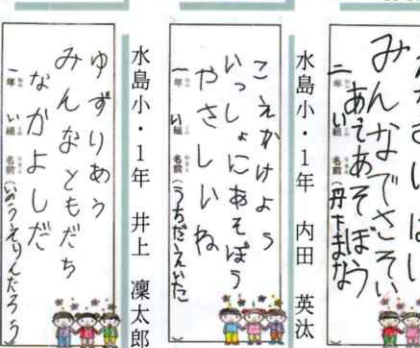 みんなでさそい
あそぼう
二年 い組 名前(丹下まな)
水島小・1年 内田 英汰
こえかけよう
いっしょにあそぼう
やさしいね
一年 い組 名前(うちだえいた)
水島小・1年 井上 凜太郎
ゆずりあう
みんなともだち
なかよしだ
一年 い組 名前(いのうえりんたろう)